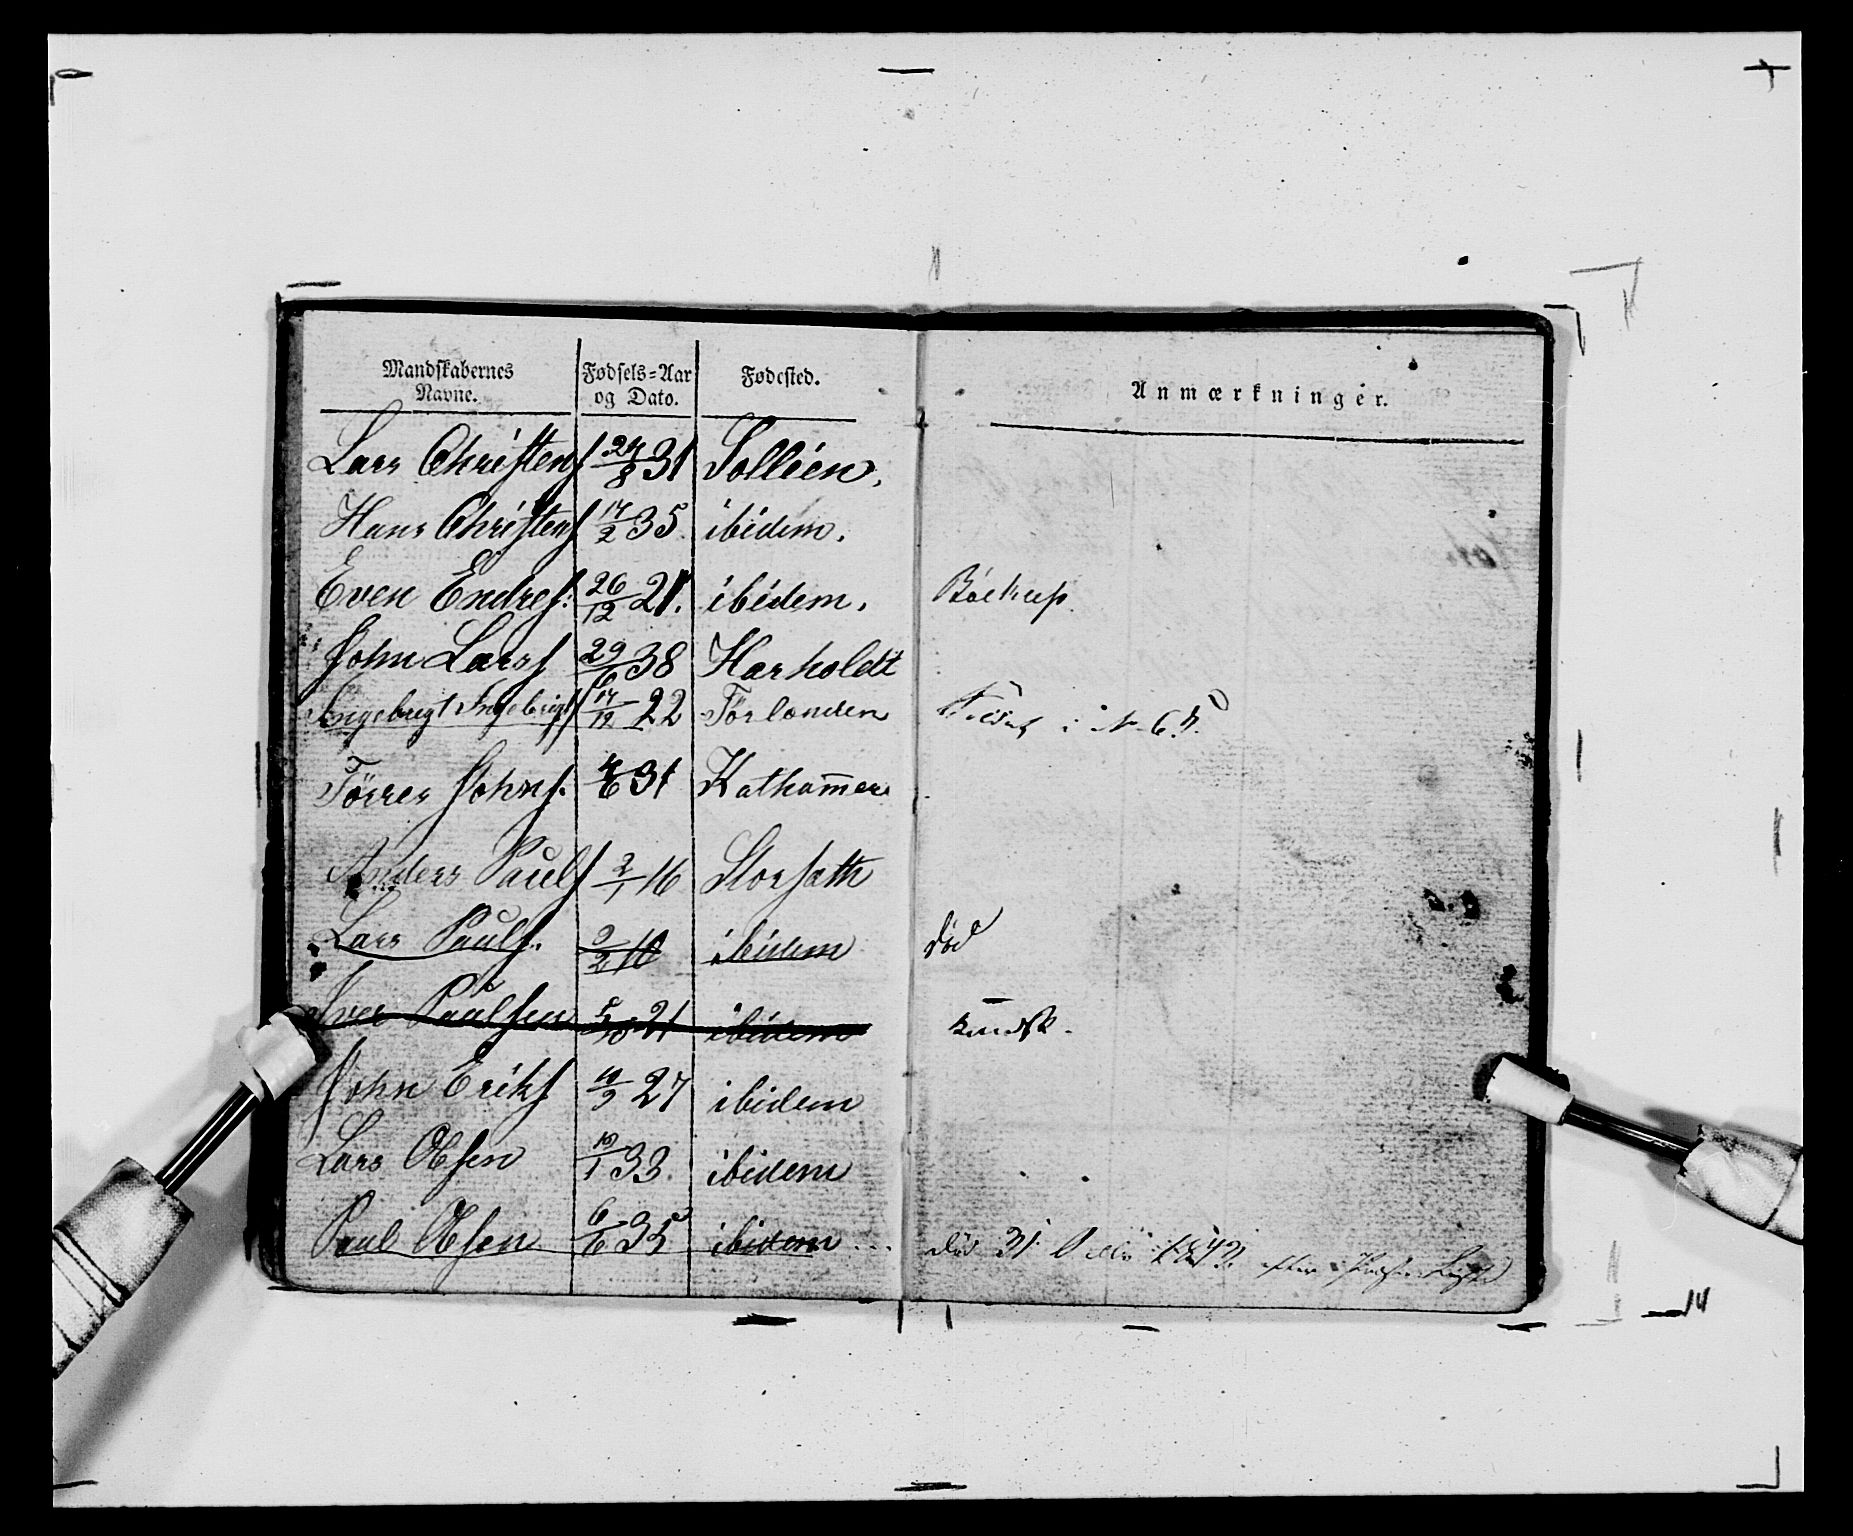 Mandskabernes Navne. Fødsels-Aar og Dato. Fødested. Anmærkninger.
Lars Christens 24/8 31 Sollien,
Hans Christens 17/2 35. ibidem.
Even Endres: 26/12 21. ibidem.
John Lars 29/6 38 Harholdt
Ingebrigt Ingebrigts 17/12 22 Törlonden i N 65.
Törres Johns. 4/6 31 Katham̅er
Anders Pauls 2/1 16 Storsæth
Lars Pauls. 2/2 10 ibidem död
Iver Paulsen 5/10 21 ibidem
John Eriks 10/9 27 ibidem
Lars Olsen 10/1 33. ibidem
Paul Olsen 6/6 35 ibidem död 31 1842 efter
14